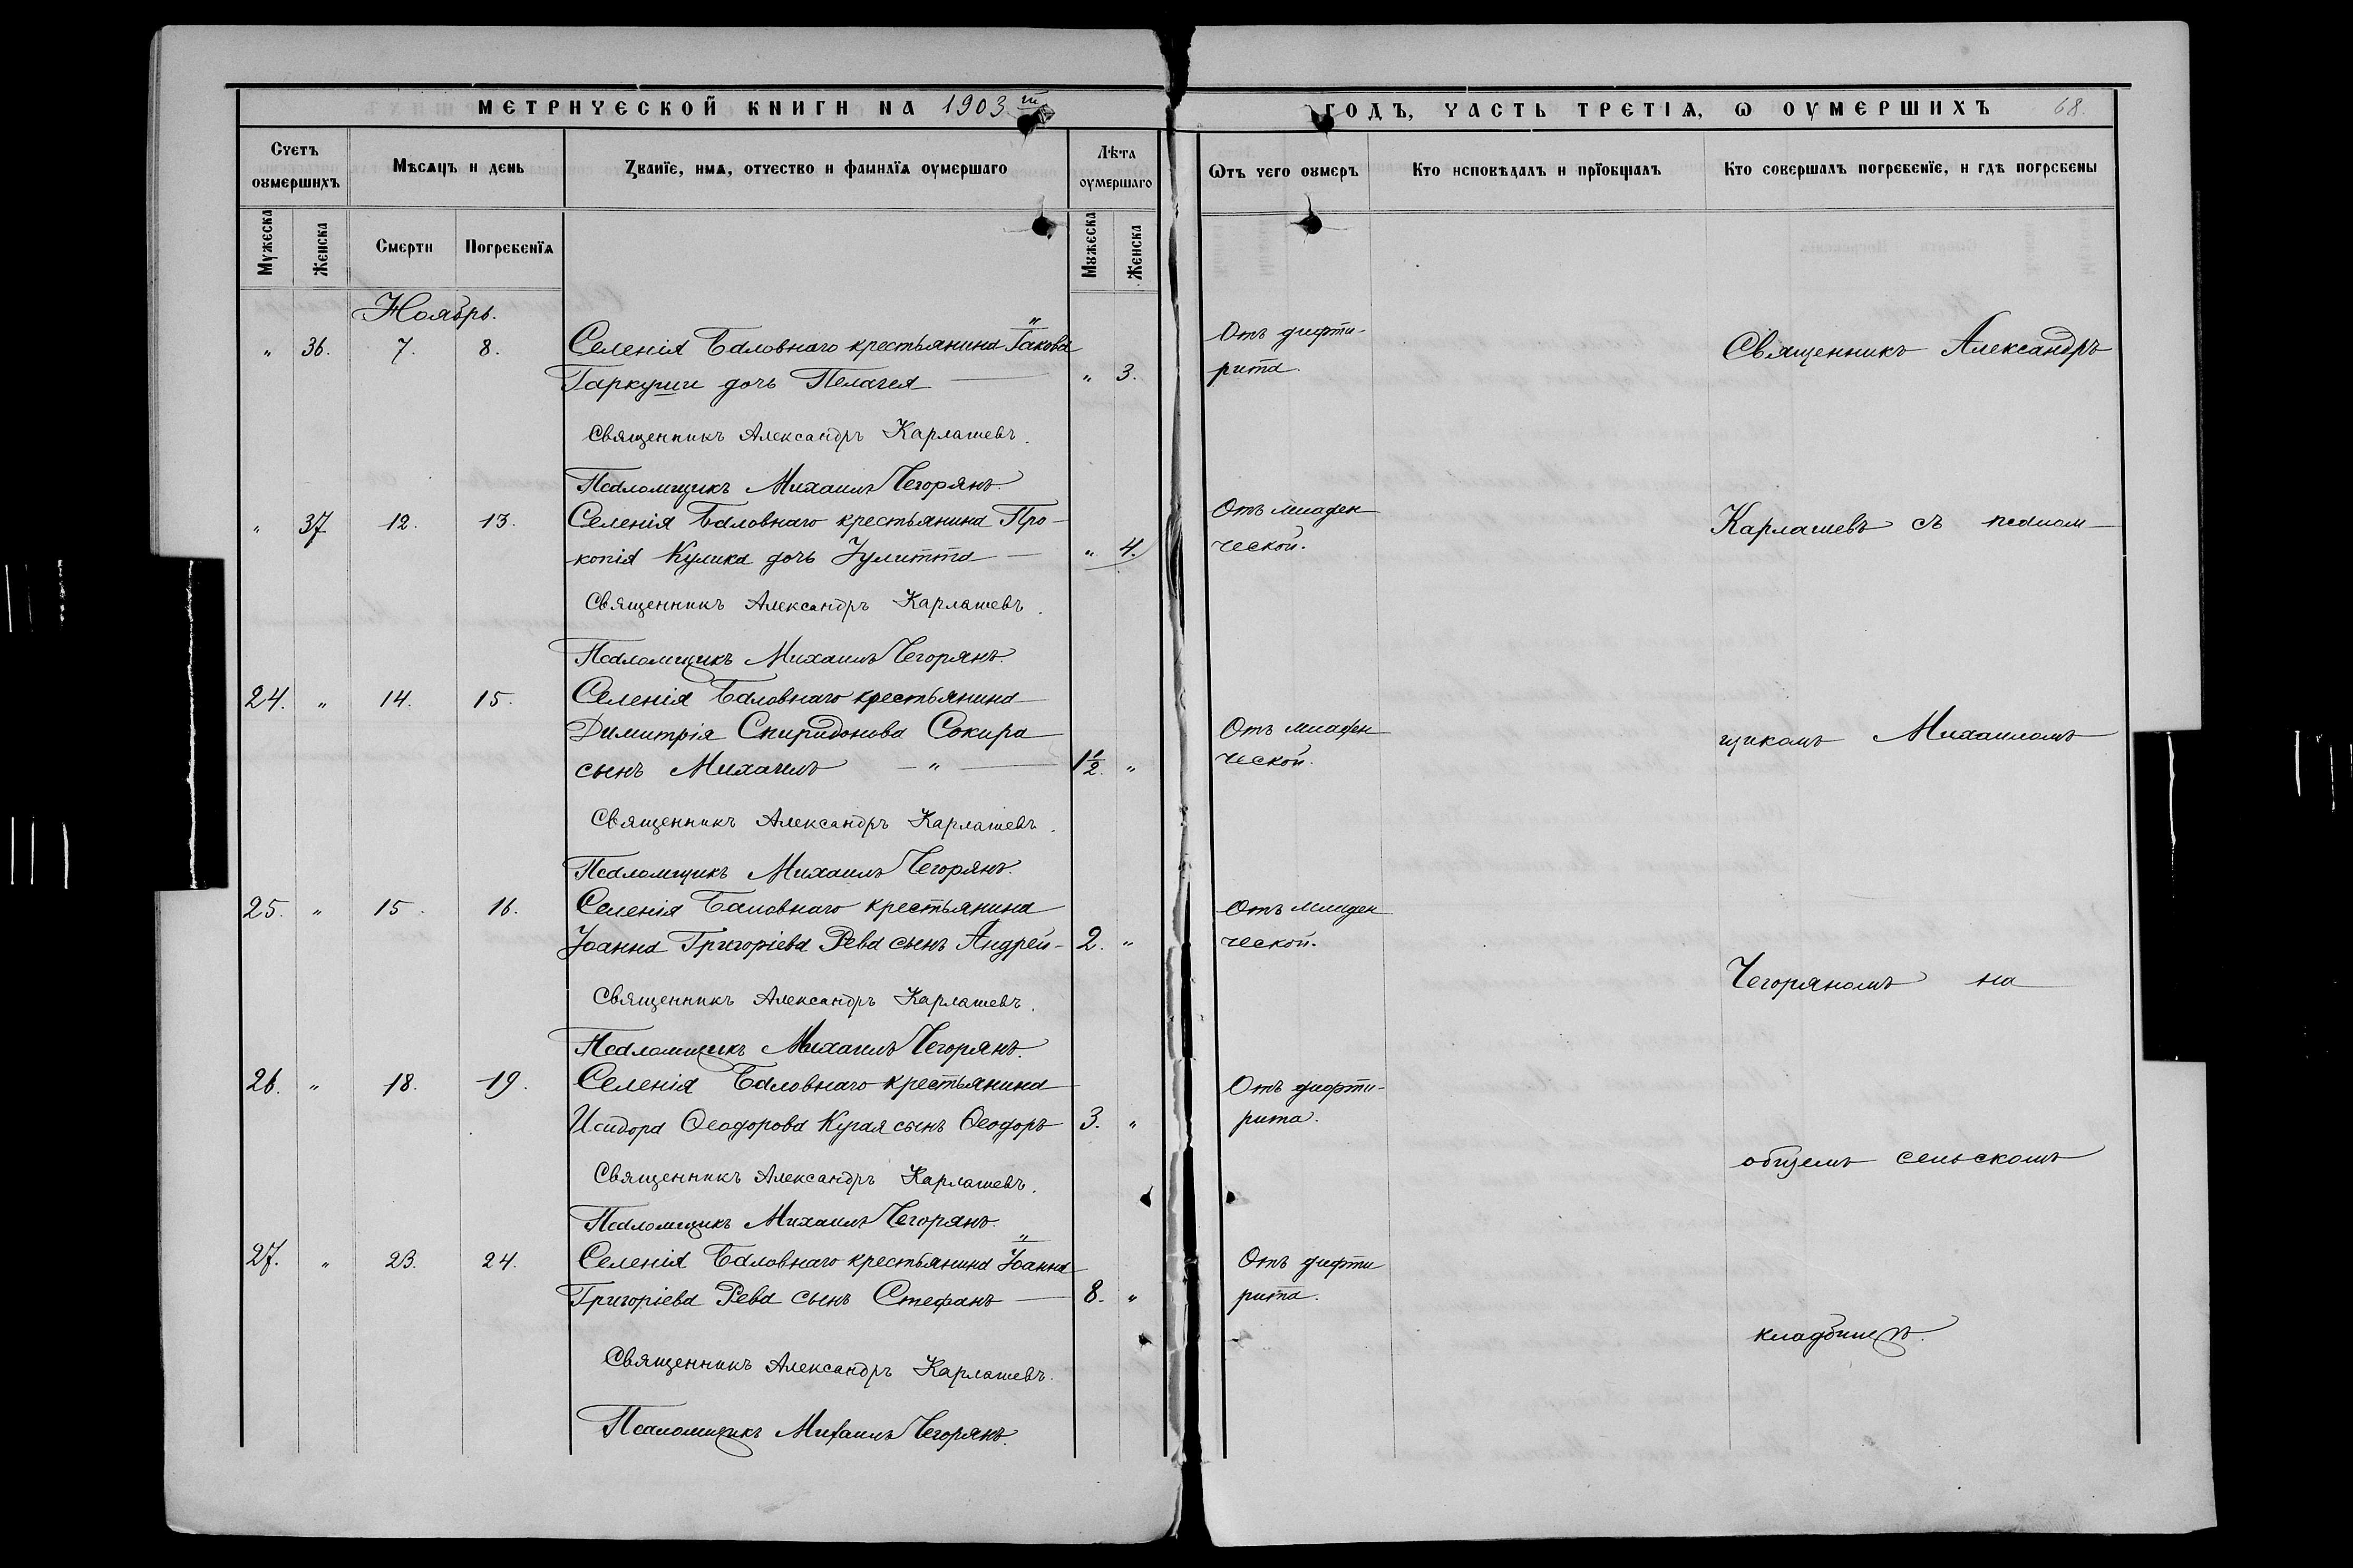 МЕТРИЧЕСКОЙ КНИГИ НА 1903 й ГОДЪ, ЧАСТЬ ТРЕТІѦ, Ѡ ОУМЕРШИХЪ 68.
Счетъ оумершихъ
Мѣсѧцъ и день
Званїе, имѧ, отчество и фамилїѧ оумершаго
Лѣта оумершаго
Ѿтъ чего оумеръ
Кто исповѣдалъ и прїобщалъ
Кто совершалъ погребенїе, и гдѣ погребены
Мужеска
Женска
Смерти
Погребенїѧ
Мужеска
Женска
Ноябрь.
" 36. 7. 8. Селенія Баловнаго крестьянина Іакова
Гаркуши дочь Пелагея " 3. Отъ дифти-
рита.
Священникъ Александръ
Священникъ Александръ Карлашевъ.
Псаломщикъ Михаилъ Чегорянъ.
" 37 12. 13. Селенія Баловнаго крестьянина Про-
копія Кулика дочь Іулитта " 4. Отъ младен
ческой.
Карлашевъ съ псалом-
Священникъ Александръ Карлашевъ.
Псаломщикъ Михаилъ Чегорянъ.
24. " 14. 15. Селенія Баловнаго крестьянина
Димитрія Спиридонова Сокира Отъ младен
сынъ Михаилъ — " — 1½. " ческой.
щикомъ Михаиломъ
Священникъ Александръ Карлашевъ.
Псаломщикъ Михаилъ Чегорянъ.
25. " 15. 16. Селенія Баловнаго крестьянина Отъ младен
Іоанна Григоріева Рева сынъ Андрей- 2. " ческой.
Чегоряномъ на
Священникъ Александръ Карлашевъ.
Псаломщикъ Михаилъ Чегорянъ.
26. " 18. 19. Селенія Баловнаго крестьянина Отъ дифти-
Исидора Ѳеодорова Кугая сынъ Ѳеодоръ 3. " рита.
общемъ сельскомъ
Священникъ Александръ Карлашевъ.
Псаломщикъ Михаилъ Чегорянъ.
27. " 23. 24. Селенія Баловнаго крестьянина Іоанна Отъ дифти
Григоріева Рева сынъ Стефанъ 8. " рита.
кладбищѣ.
Священникъ Александръ Карлашевъ.
Псаломщикъ Михаилъ Чегорянъ.